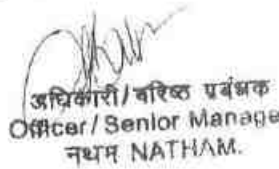 अधिकारी/वरिष्ठ प्रबंधक
Officer/Senior Manage
नथम NATHAM.